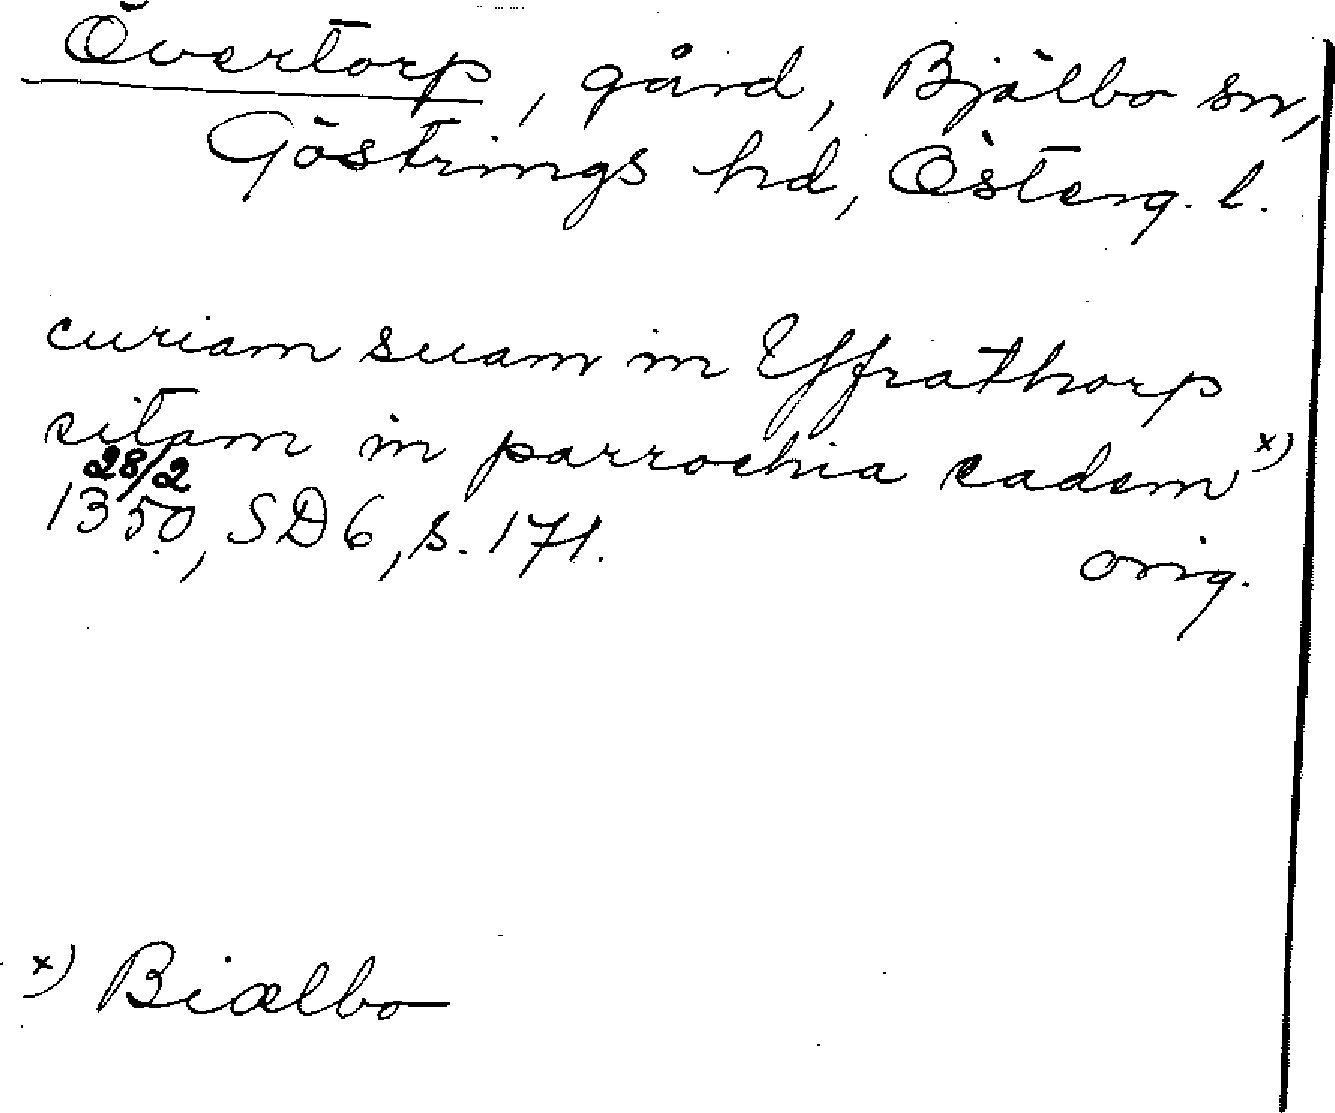 Övertorp, gård, Bjälbo sn,
Göstrings hd, Österg. l.
curiam suam in Yffrathorp
sitam in parrochia eadem x)
28/2
1350, SD 6, s. 171.
orig.
x) Biælbo